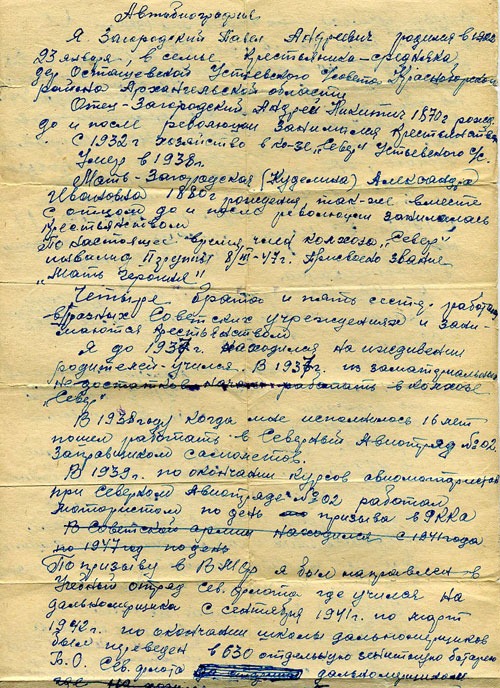 Автобиография
Я Загородский Павел Андреевич родился в 1922
23 января, в семье Крестьянина-средняка
дер Осташевской Устьевского с/совета Красноборского
района Архангельской области
Отец-Загородский Андрей Никитич 1870г рожд.
до и после революции занимался Крестьянством
С 1932г хозяйство в ко-зе „Север" Устьевского с/с.
Умер в 1938г.
Мать-Загородская (Кудрина) Александра
Ивановна 1880г рождения, так-же вместе
с отцом до и после революции занималась
Крестьянством
По настоящее время член колхоза „Север"
Президиум 8/III-47г. Присвоено звание
„Мать Героиня"
Четыре брата и пять сестр. работают
в разных Советских учреждениях и зани-
маются Крестьянством
Я до 1937г. находился на иждивении
родителей-учился. В 1937г. из за материальных
недостатков начал работать в колхозе
„Север"
В 1938году когда мне исполнилось 16 лет
пошел работать в Северный Авиотряд №302.
Заправщиком самолетов.
В 1939г. по окончании курсов авиомотористов
при Северном Авиотряде №302 работал
Мотористом по день призыва в РККА
В Советской армии находился с 1941года
по 1947 год по день
По призыву в ВМФ я был направлен в
Учебный отряд Сев. Флота где учился на
дальномерщика с сентября 1941г. по март
1942г. по окончании школы дальномерщиков
был переведен в 630 отдельную зенитную батарею
Б.О. Сев. флота дальномерщиком
где